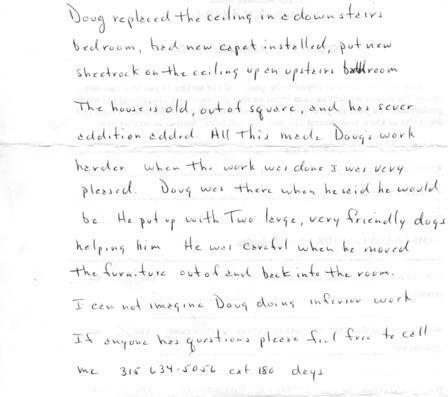 Doug replaced the ceiling in a downstairs
bedroom, had new capet installed, put new
sheetrock on the ceiling up an upstairs bathroom
The house is old, out of square, and has sever
addition added. All this made Doug's work
harder. When the work was done I was very
pleased. Doug was there when he said he would
be. He put up with Two large, very friendly dogs
helping him He was careful when he moved
the furniture out of and back into the room.
I can not imagine Doug doing inferior work.
If anyone has questions please feel free to call
me 315 634-5056 ext 180 days